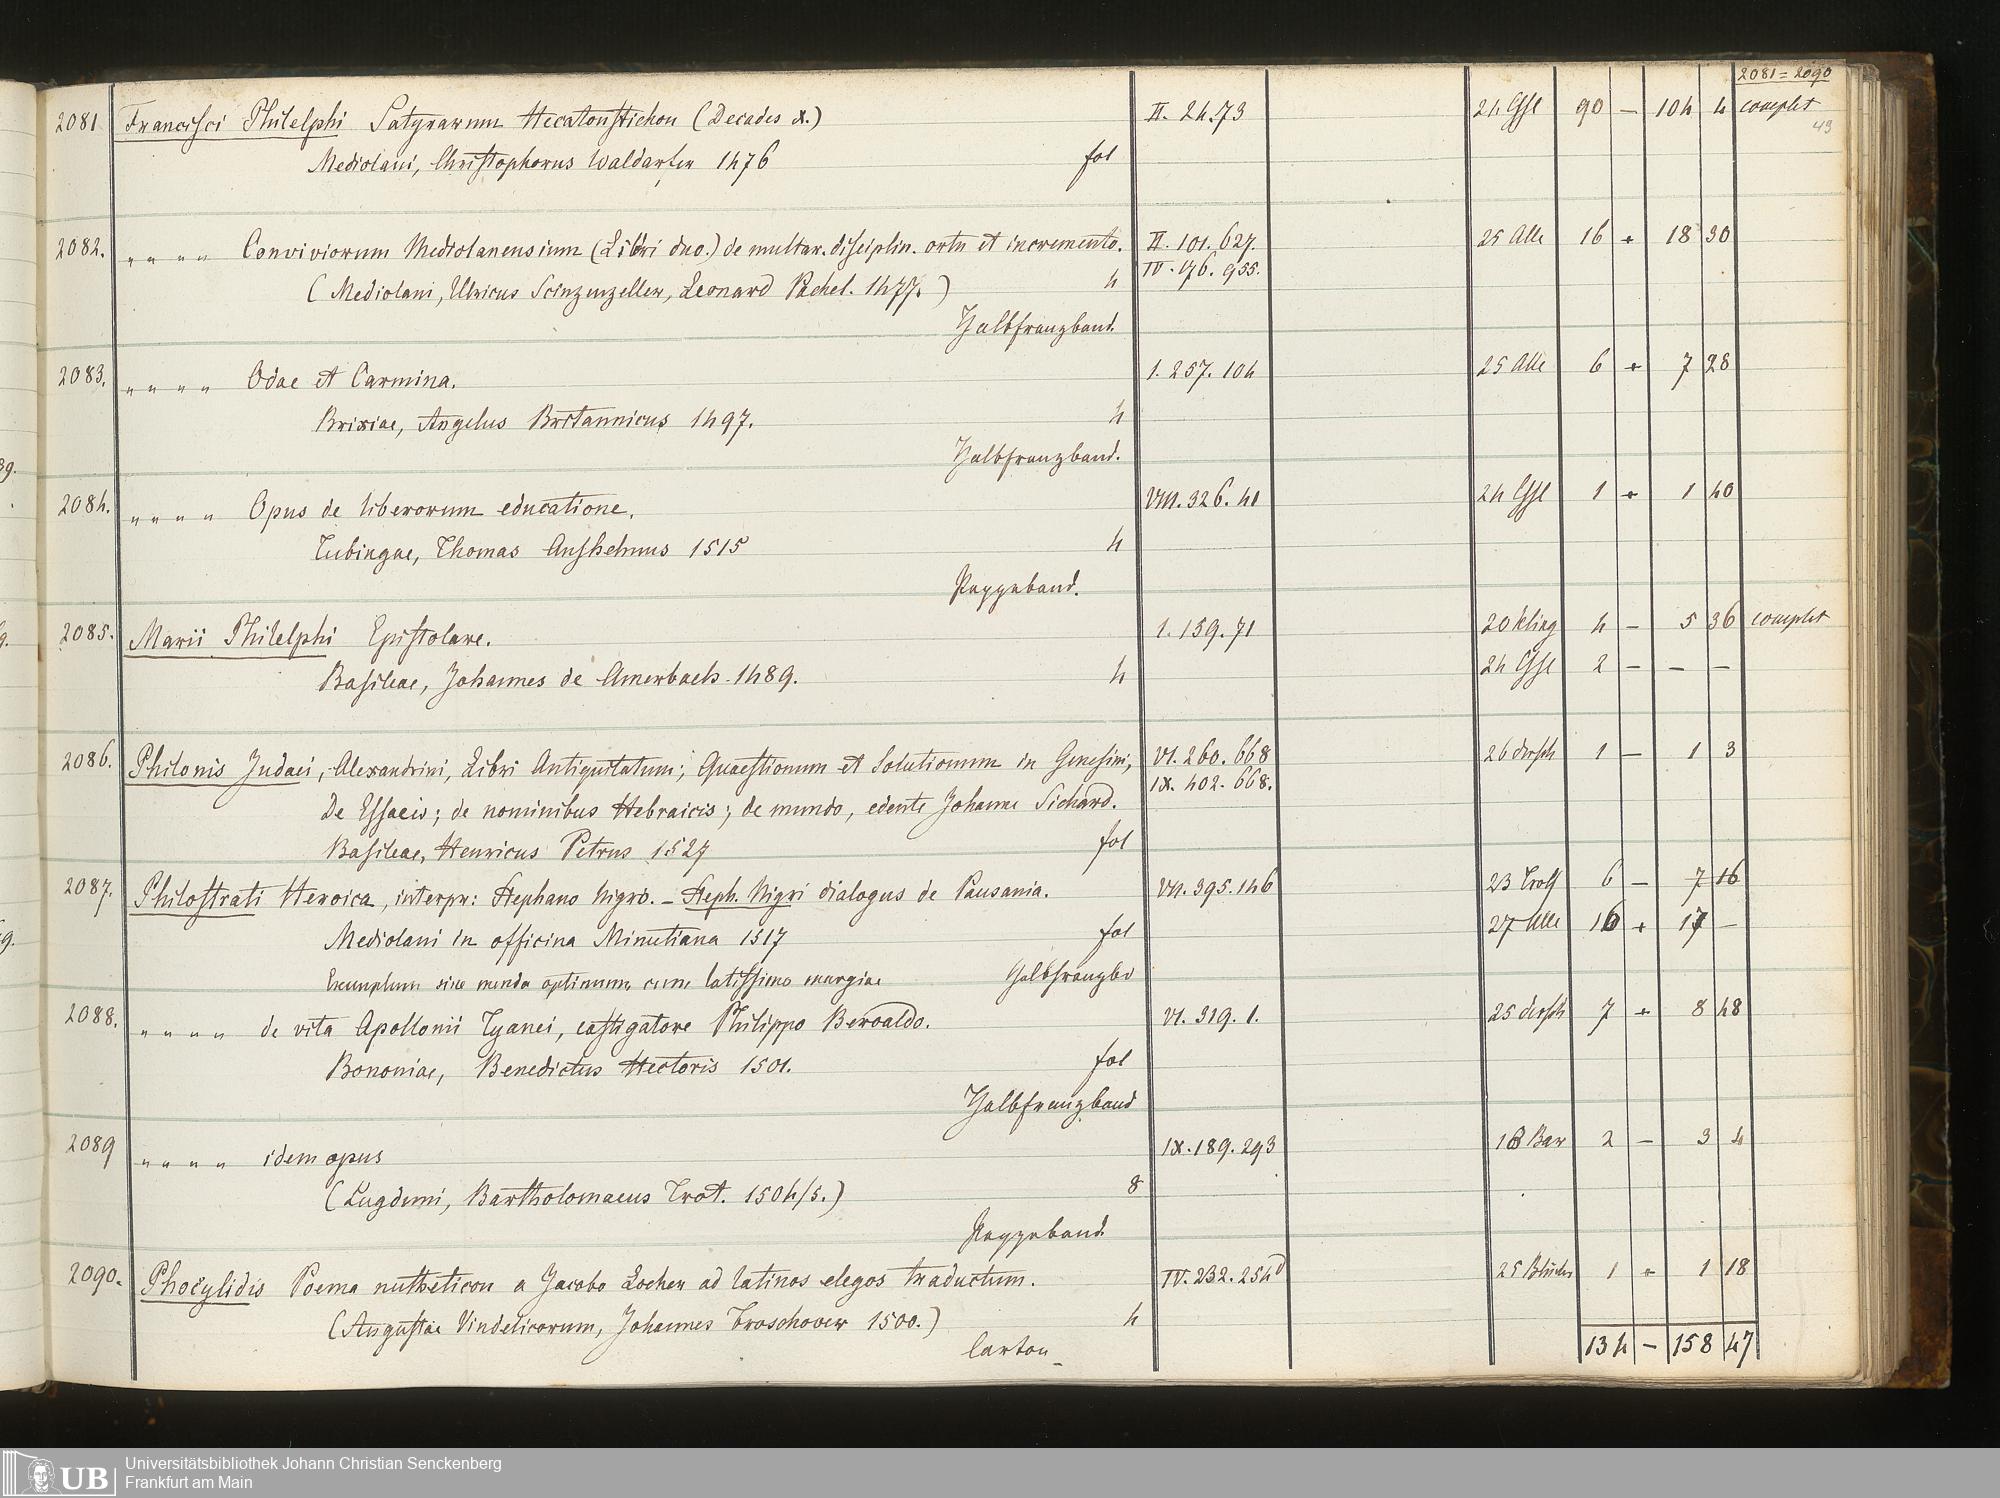 2081 = 2090
49
2081 Francisci Philelphi Satyrarum Hecatonstichon (Decades X.) II. 24.73 24 90 — 104 4 complet
Mediolani, Christophorus Waldarfer 1476 fol
2082. " " " " Conviviorum Mediolanensium (Libri duo.) de multar. disciplin. ortu et incremento. II. 101. 627. 25 Alle 16 + 18 30
(Mediolani, Ulricus Scinzenzeller, Leonard Pachel. 1477.) 4 IV. 76. 955.
Halbfranzband.
2083. " " " " Odae et Carmina. I. 257. 104 25 Alle 6 + 7 28
Brixiae, Angelus Britannicus 1497. 4
Halbfranzband.
2084. " " " " Opus de liberorum educatione. VIII. 326. 41 24 1 + 1 40
Tubingae, Thomas Anshelmus 1515 4
Pappband.
2085. Marii Philelphi Epistolare. I. 159. 71 20 Kling 4 — 5 36 complet
Basileae, Johannes de Amerbach 1489. 4 24 2 — — —
2086. Philonis Judaei, Alexandrini, Libri Antiquitatum; Quaestionum et Solutionum in Genesim; VI. 260. 668 26 1 — 1 3
De Essaeis; de nominibus Hebraicis; de mundo, edente Johanne Sichard. IX. 402. 668.
Basileae, Henricus Petrus 1527 fol
2087. Philostrati Heroica, interpr: Stephano Nigro. — Steph. Nigri dialogus de Pausania. VII. 395. 146 23 6 — 7 16
Mediolani in officina Minutiana 1517 fol 27 Alle 16 + 17 —
Exemplum sine menda optimum cum latissimo margine Halbfranzbd
2088. " " " " de vita Apollonii Tyanei, castigatore Philippo Beroaldo. VI. 319. 1. 25 7 + 8 48
Bononiae, Benedictus Hectoris 1501. fol
Halbfranzband
2089 " " " " idem opus IX. 189. 293 18 Bar 2 — 3 4
(Lugduni, Bartholomaeus Trot. 1504/5.) 8
Pappband.
2090. Phocylidis Poema nutheticon a Jacobo Locher ad latinos elegos traductum. IV. 232. 254d 25 1 + 1 18
(Augustae Vindelicorum, Johannes Froschover 1500.) 4
Carton
134 — 158 47
UB Universitätsbibliothek Johann Christian Senckenberg
Frankfurt am Main